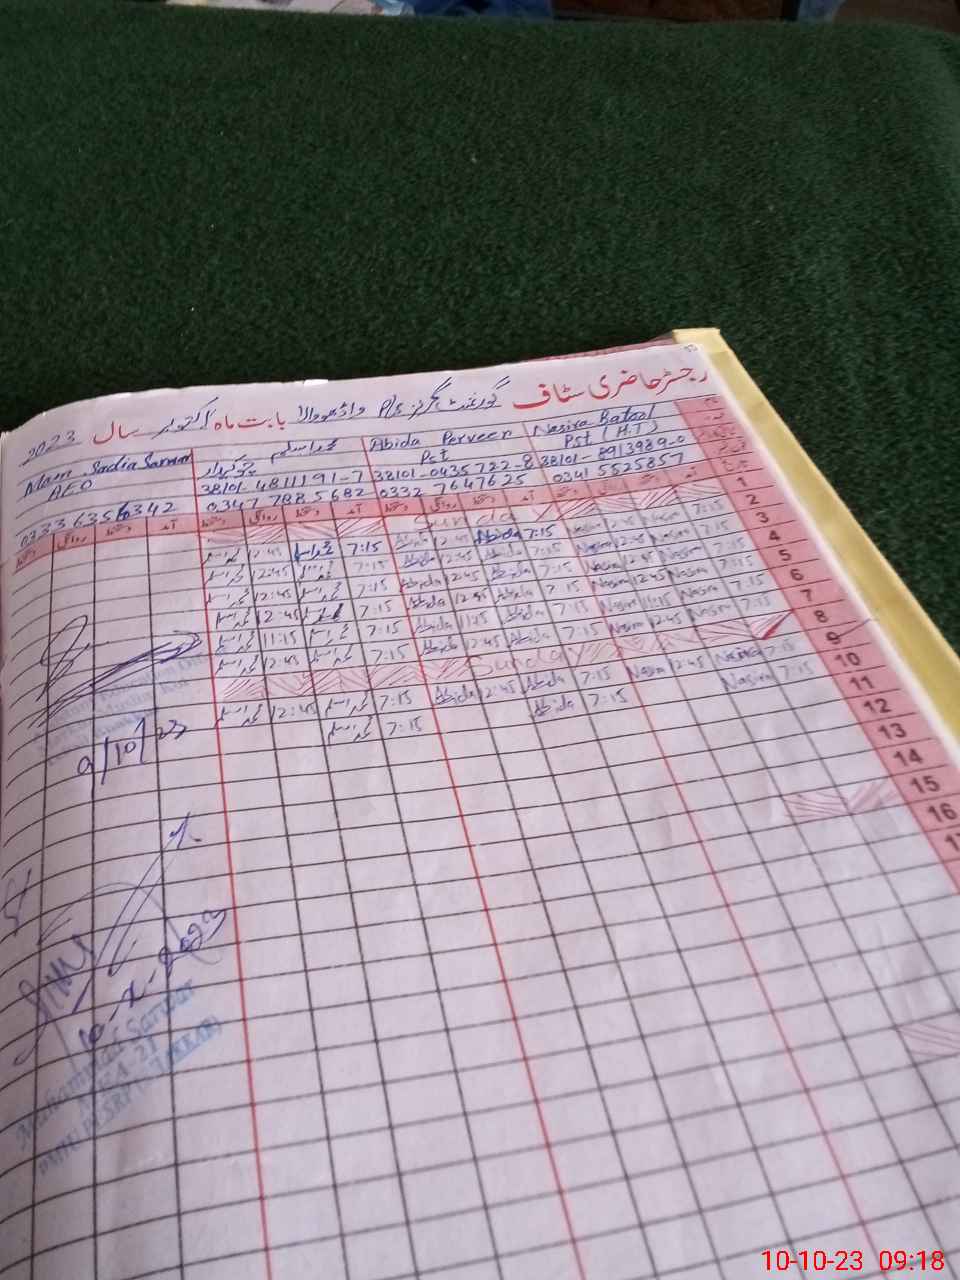 رجسٹر حاضری سٹاف گورنمنٹ گرلز P/S واڈھو والا بابت ماہ اکتوبر سال 2023
Nasira Batool
Pst (H.T)
38101-8913989-0
0341 5525857
Abida Perveen
Pst
38101-0435722-8
0332 7647625
محمد اسلم
چوکیدار
38101-4811191-7
0347 7885682
Mam Sadia
AEO
0336356342
آمد دستخط روانگی دستخط آمد دستخط روانگی دستخط آمد دستخط روانگی دستخط آمد دستخط روانگی دستخط
1 Sunday
2 7:15 Nasira 12:45 Nasira 7:15 Abida 12:45 Abida 7:15 محمد اسلم 12:45 محمد اسلم
3 7:15 Nasira 12:45 Nasira 7:15 Abida 12:45 Abida 7:15 محمد اسلم 12:45 محمد اسلم
4 7:15 Nasira 12:45 Nasira 7:15 Abida 12:45 Abida 7:15 محمد اسلم 12:45 محمد اسلم
5 7:15 Nasira 12:45 Nasira 7:15 Abida 12:45 Abida 7:15 محمد اسلم 12:45 محمد اسلم
6 7:15 Nasira 11:15 Nasira 7:15 Abida 11:15 Abida 7:15 محمد اسلم 11:15 محمد اسلم
7 7:15 Nasira 12:45 Nasira 7:15 Abida 12:45 Abida 7:15 محمد اسلم 12:45 محمد اسلم
8 Sunday
9 7:15 Nasira 12:45 Nasira 7:15 Abida 12:45 Abida 7:15 محمد اسلم 12:45 محمد اسلم
10 7:15 Nasira 7:15 Abida 7:15 محمد اسلم
11
12
13
14
15
16
17
9/10/23
10-X-2023
Muhammad Sarwar
10-10-23 09:18